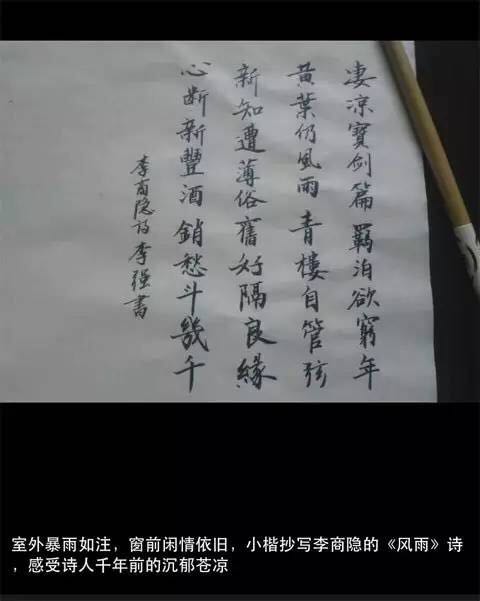 凄凉寶剑篇 羁泊欲窮年
黄葉仍風雨 青樓自管弦
新知遭薄俗 舊好隔良緣
心断新豐酒 銷愁斗幾千
李商隐诗 李强書
室外暴雨如注，窗前闲情依旧，小楷抄写李商隐的《风雨》诗
，感受诗人千年前的沉郁苍凉